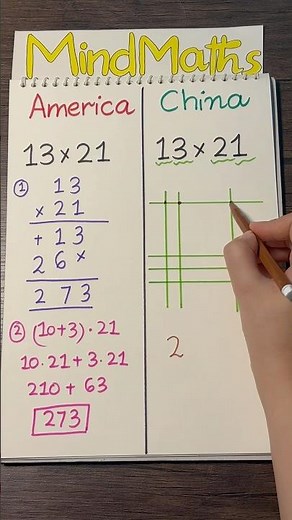 MindMaths
America
13 × 21
① 13
× 21
+ 13
26×
273
② (10+3) · 21
10 · 21 + 3 · 21
210 + 63
273
China
13 × 21
2